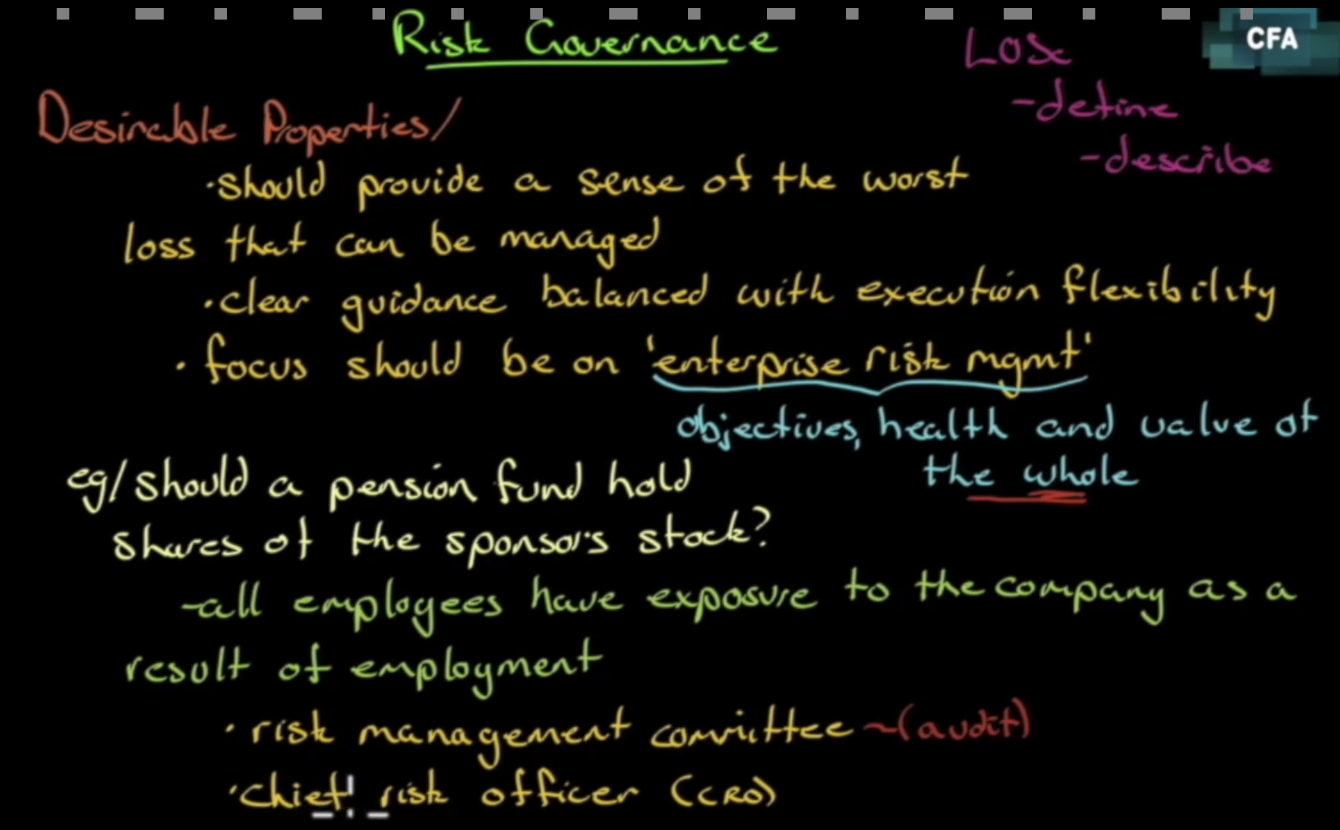 Risk Governance
LOS
CFA
-define
-describe
Desirable Properties/
·should provide a sense of the worst
loss that can be managed
·clear guidance balanced with execution flexibility
·focus should be on 'enterprise risk mgmt'
objectives, health and value of
the whole
eg/should a pension fund hold
shares of the sponsors stock?
-all employees have exposure to the company as a
result of employment
·risk management committee ~(audit)
·chief risk officer (CRO)